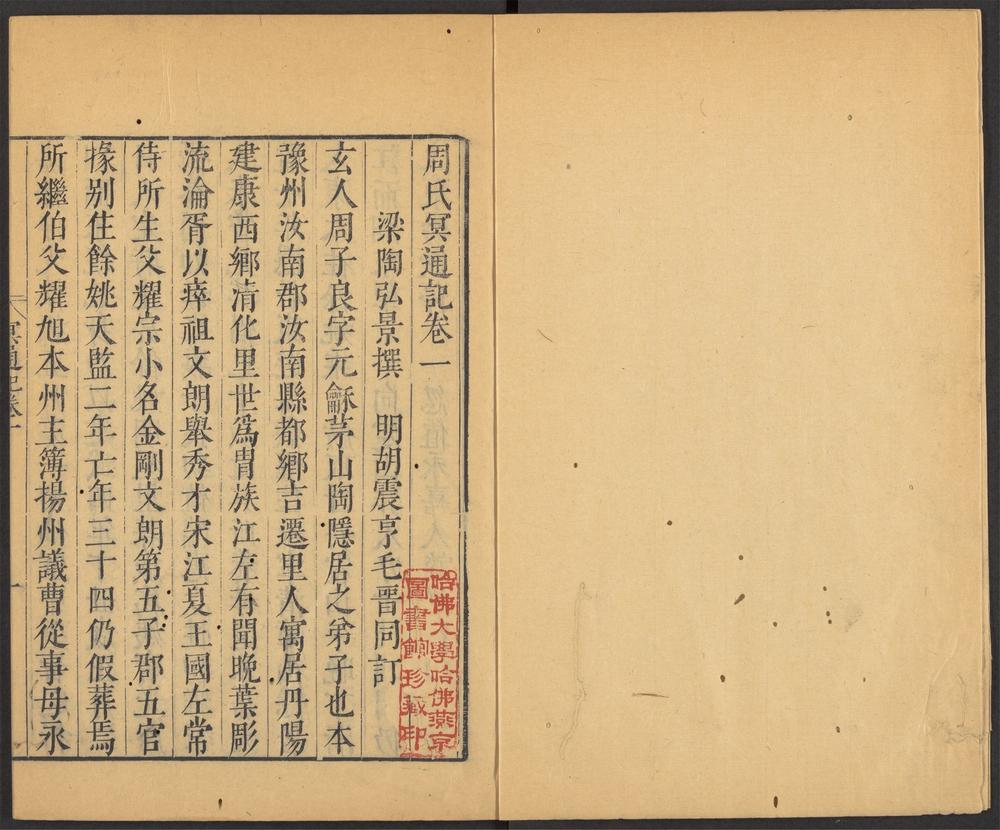 周氏冥通記卷一
梁陶弘景撰 明胡震亨毛晋同訂
玄人周子良字元龢茅山陶隱居之弟子也本
豫州汝南郡汝南縣都鄉吉遷里人寓居丹陽
建康西鄉清化里世爲胄族江左有聞晚葉彫
流淪胥以瘁祖文朗舉秀才宋江夏王國左常
侍所生父耀宗小名金剛文朗第五子郡五官
掾别住餘姚天監二年亡年三十四仍假葬焉
所繼伯父耀旭本州主簿揚州議曹從事母永
冥通記卷一
一
哈佛大學哈佛燕京
圖書館珍藏印